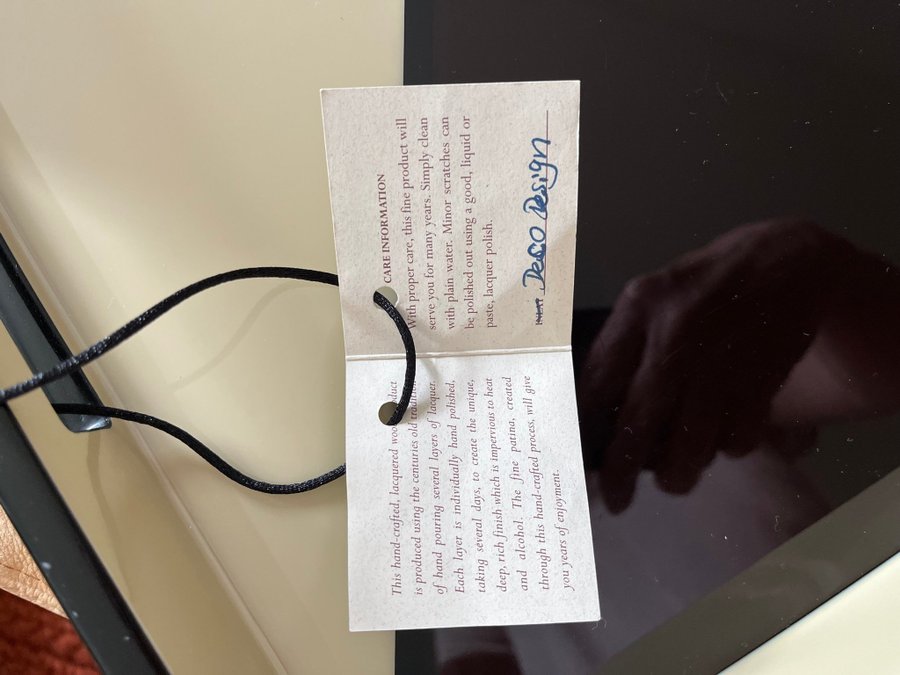 This hand-crafted, lacquered
is produced using the centuries old
of hand pouring several layers of lacquer.
Each layer is individually hand polished,
taking several days, to create the unique,
deep, rich finish which is impervious to heat
and alcohol. The fine patina, created
through this hand-crafted process, will give
you years of enjoyment.
CARE INFORMATION
With proper care, this fine product will
serve you for many years. Simply clean
with plain water. Minor scratches can
be polished out using a good, liquid or
paste, lacquer polish.
Deco Design